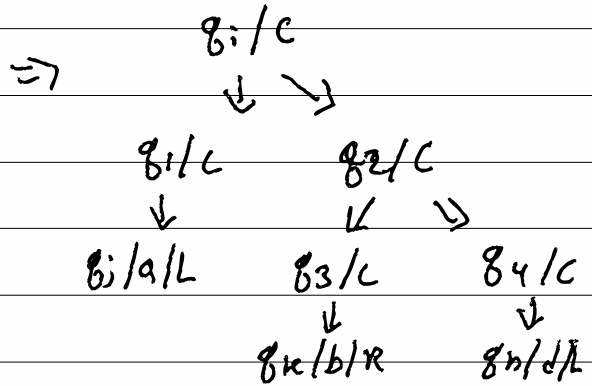 qi/c
⇒
q1/c q2/c
qj/a/L q3/c q4/c
qk/b/R qn/d/L